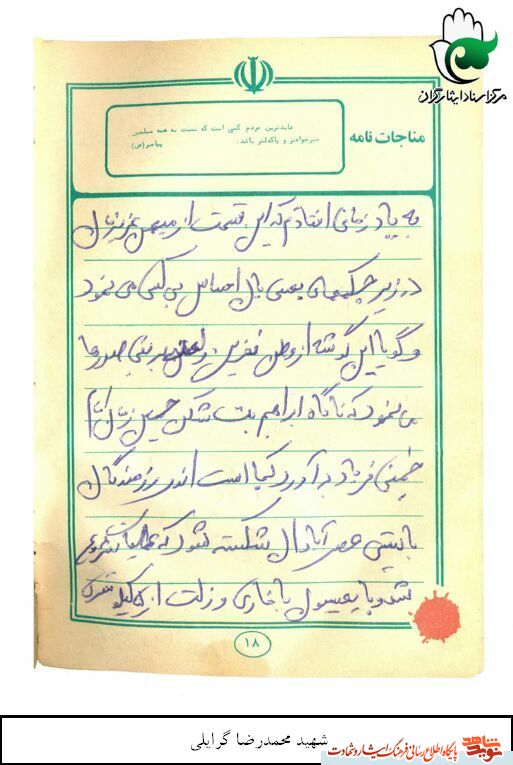 مرکز اسناد ایثارگران
مناجات نامه
عابدترین مردم کسی است که نسبت به همه مسلمین
خیرخواهتر و پاکدلتر باشد. پیامبر(ص)
به یاد زمانی افتادم که این قسمت از میهن عزیزمان
در زیر چکمه‌های بعثی بال احساس بی کسی می نمود
و گویا این گوشه از وطن نفرین و لعن بر بنی صدرها
می نمود که ناگاه ابراهیم بت شکن حسین زمان امام
خمینی فریاد بر آورد کجا است اندی رزمندگان
بایستی حصر آبادان شکسته شود که عملیات شروع
شد و با خاری و ذلت از
۱۸
شهید محمدرضا گرایلی
نوید شاهد
پایگاه اطلاع رسانی فرهنگ ایثار و شهادت